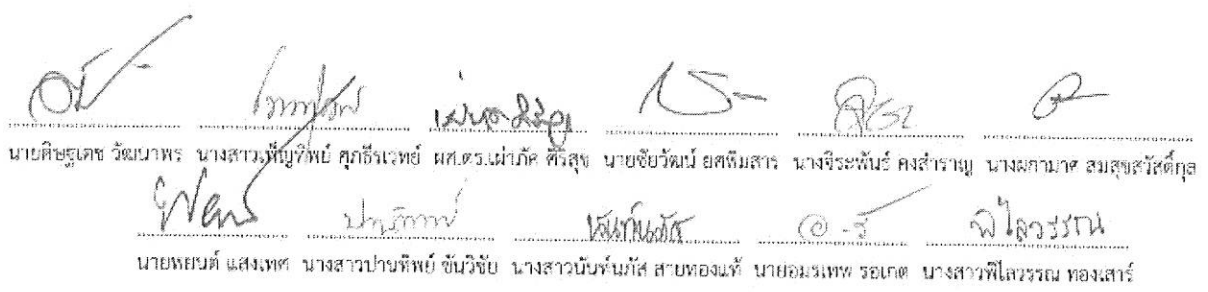 นายดิษฐเดช วัฒนาพร นางสาวเพ็ญทิพย์ ศุภธีรเวทย์ ผศ.ดร.เผ่าภัค ศิริสุข นายชัยวัฒน์ ยศพิมสาร นางจิระพันธ์ คงสำราญ นางผกามาศ สมสุขสวัสดิ์กุล
ปานทิพย์ นันท์นภัส พิไลวรรณ
นายพยนต์ แสงเทศ นางสาวปานทิพย์ ขันวิชัย นางสาวนันท์นภัส สายทองแท้ นายอมรเทพ รอเกต นางสาวพิไลวรรณ ทองเสาร์